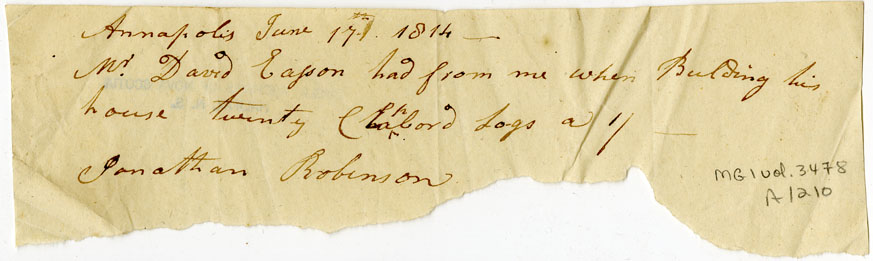 Annapolis June 17th 1814 —
Mr David Easson had from me when Bulding his
house twenty Logs a 1/ —
Jonathan Robinson
MG1 vol. 3478
A/210